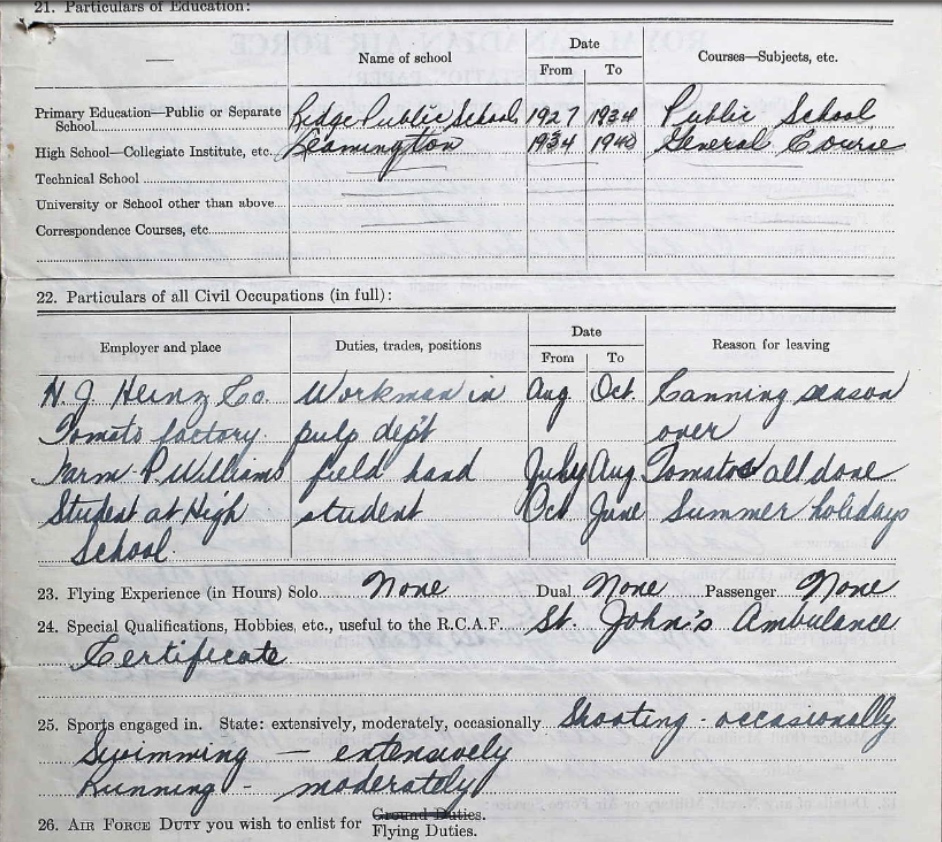 21. Particulars of Education:
Name of school
Date
From To
Courses—Subjects, etc.
Primary Education—Public or Separate
School Ridge Public School 1927 1934 Public School
High School—Collegiate Institute, etc. Leamington 1934 1940 General Course
Technical School
University or School other than above
Correspondence Courses, etc.
22. Particulars of all Civil Occupations (in full):
Employer and place
Duties, trades, positions
Date
From To
Reason for leaving
H. J. Heinz Co. Workman in Aug Oct. Canning season
Tomato factory pulp dep't over
Farm - P. Williams field hand July Aug Tomatos all done
Student at High student Oct June Summer holidays
School.
23. Flying Experience (in Hours) Solo None Dual None Passenger None
24. Special Qualifications, Hobbies, etc., useful to the R.C.A.F. St. John's Ambulance
Certificate
25. Sports engaged in. State: extensively, moderately, occasionally Shooting - occasionally
Swimming — extensively
Running - moderately
26. AIR FORCE DUTY you wish to enlist for Ground Duties.
Flying Duties.